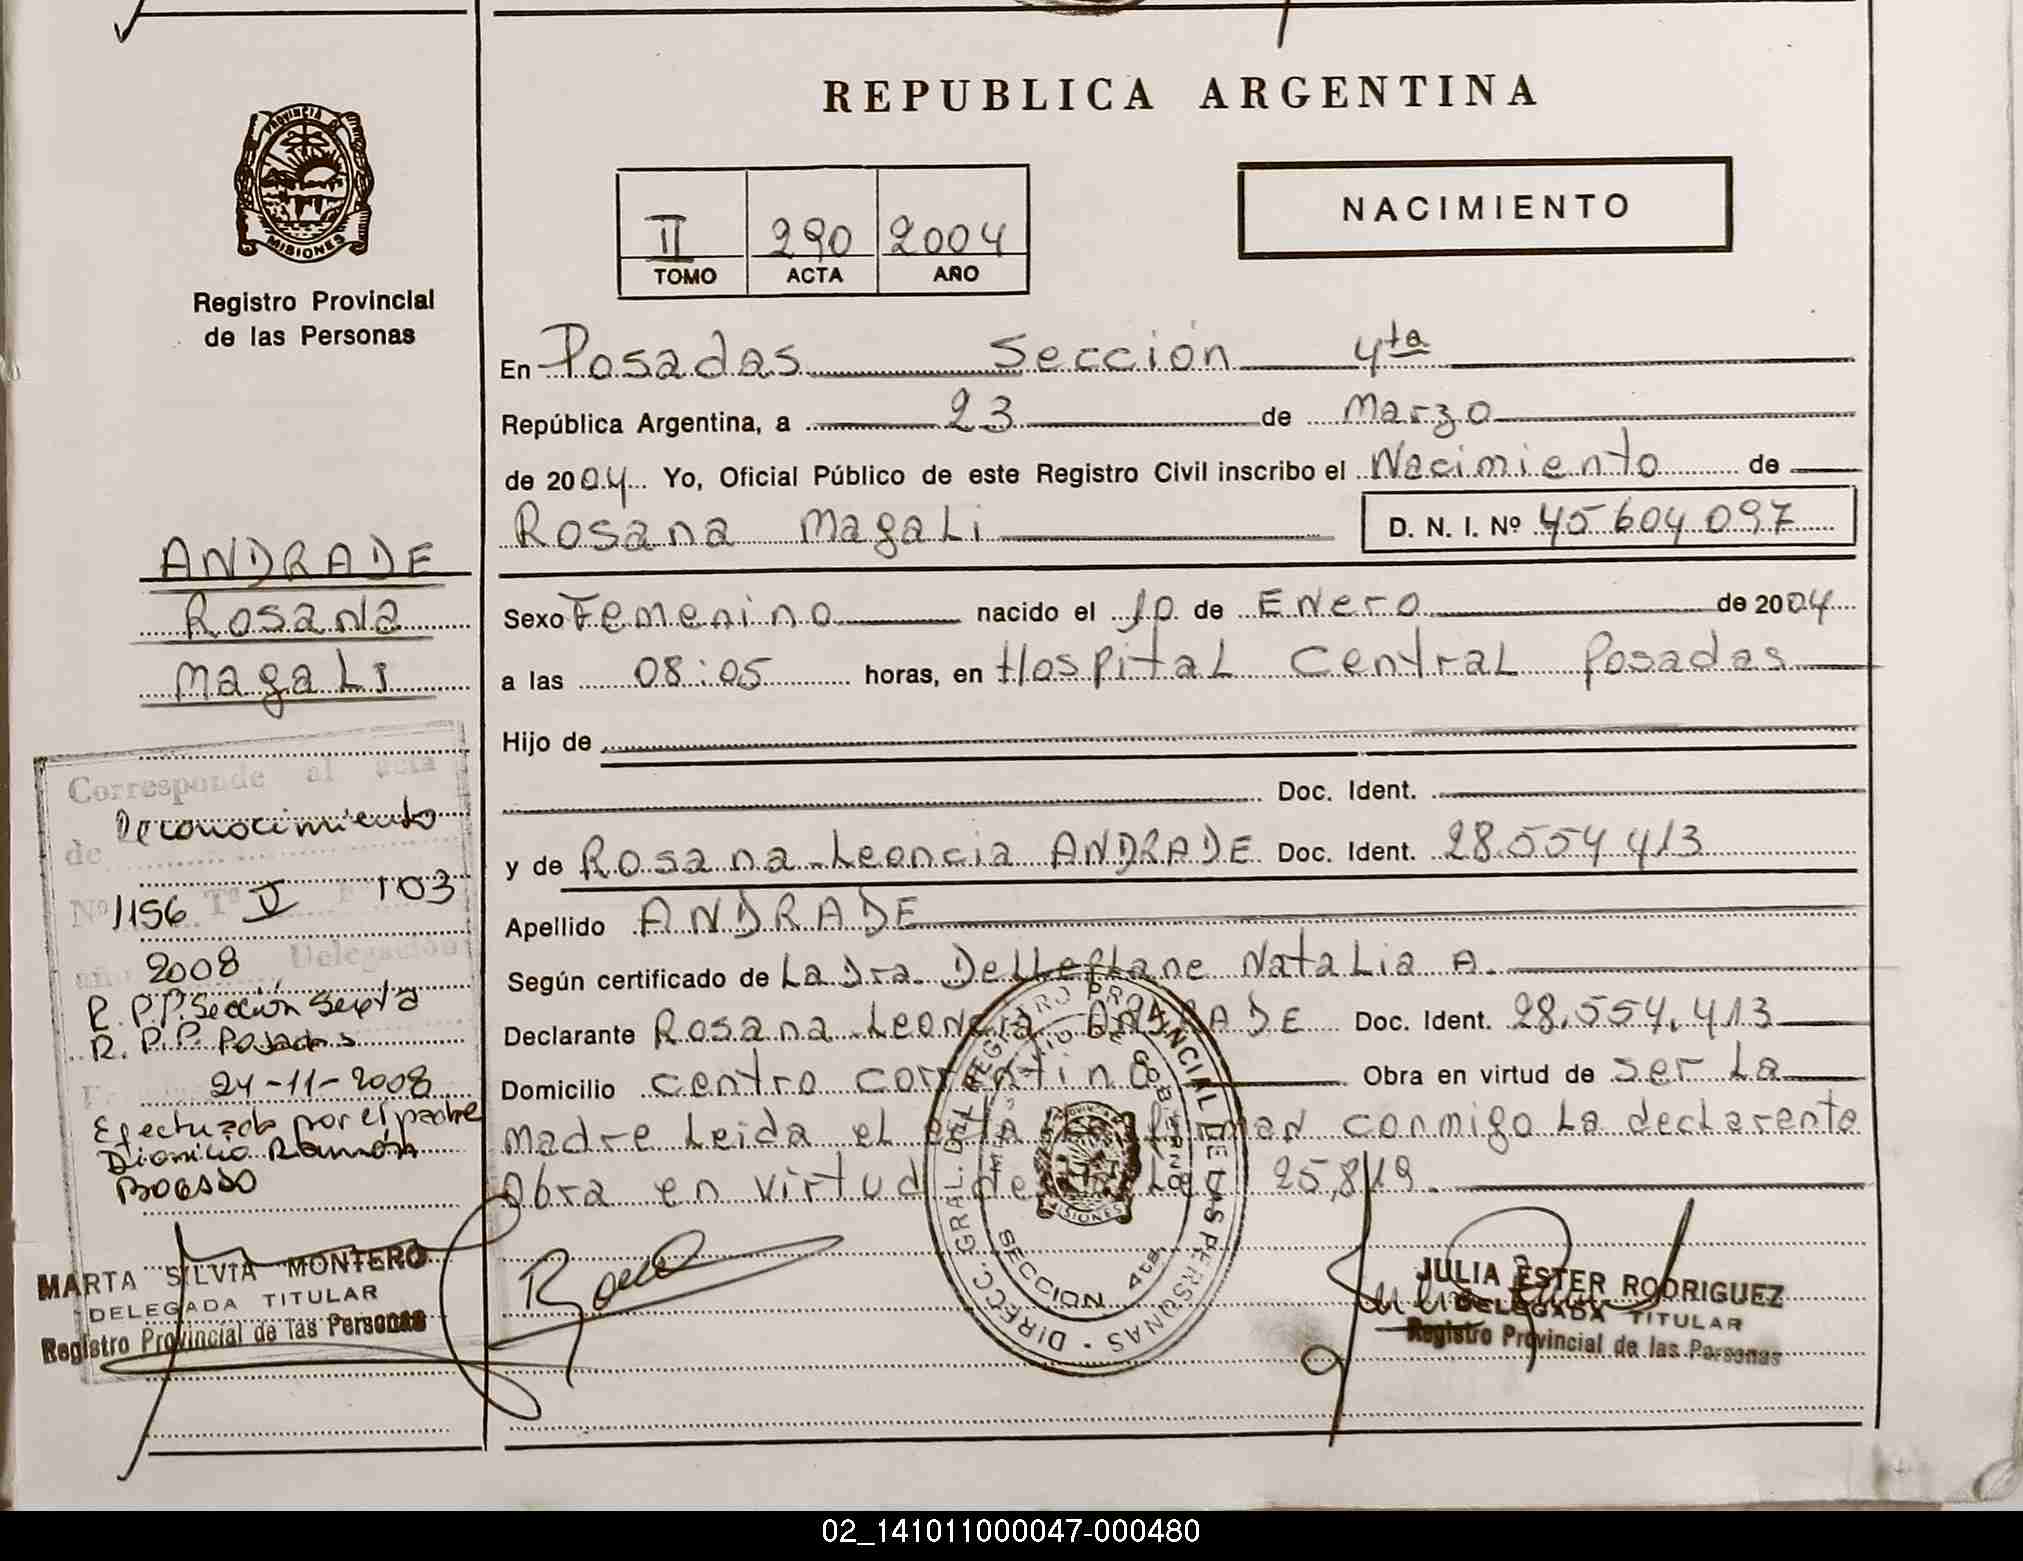 REPUBLICA ARGENTINA
PROVINCIA DE
MISIONES
Registro Provincial
de las Personas
II 290 2004
TOMO ACTA AÑO
NACIMIENTO
En Posadas Sección 4ta
República Argentina, a 23 de Marzo
de 2004 Yo, Oficial Público de este Registro Civil inscribo el Nacimiento de
Rosana Magali D. N. I. Nº 45604097
Sexo Femenino nacido el 10 de Enero de 2004
a las 08:05 horas, en Hospital Central Posadas
Hijo de
Doc. Ident.
y de Rosana Leoncia ANDRADE Doc. Ident. 28.554 413
Apellido ANDRADE
Según certificado de La Dra. Delleflane Natalia A.
Declarante Rosana Leoncia ANDRADE Doc. Ident. 28.554.413
Domicilio centro correntino Obra en virtud de ser La
madre Leida el acta firman conmigo La declarente
Obra en virtud de La Ley 25,819.
ANDRADE
Rosana
Magali
Corresponde al acta
de Reconocimiento
Nº 1156 Tº II F 103
año 2008 Delegación
R. P.P. Sección Sexta
R. P.P. Posadas
24-11-2008
Efectuado por el padre
Dionicio Ramón
BOGADO
MARTA SILVIA MONTERO
DELEGADA TITULAR
Registro Provincial de las Personas
DIRECC. GRAL. DEL REGISTRO PROVINCIAL DE LAS PERSONAS
SECCION 4ta
MISIONES
JULIA ESTER RODRIGUEZ
DELEGADA TITULAR
Registro Provincial de las Personas
02_141011000047-000480